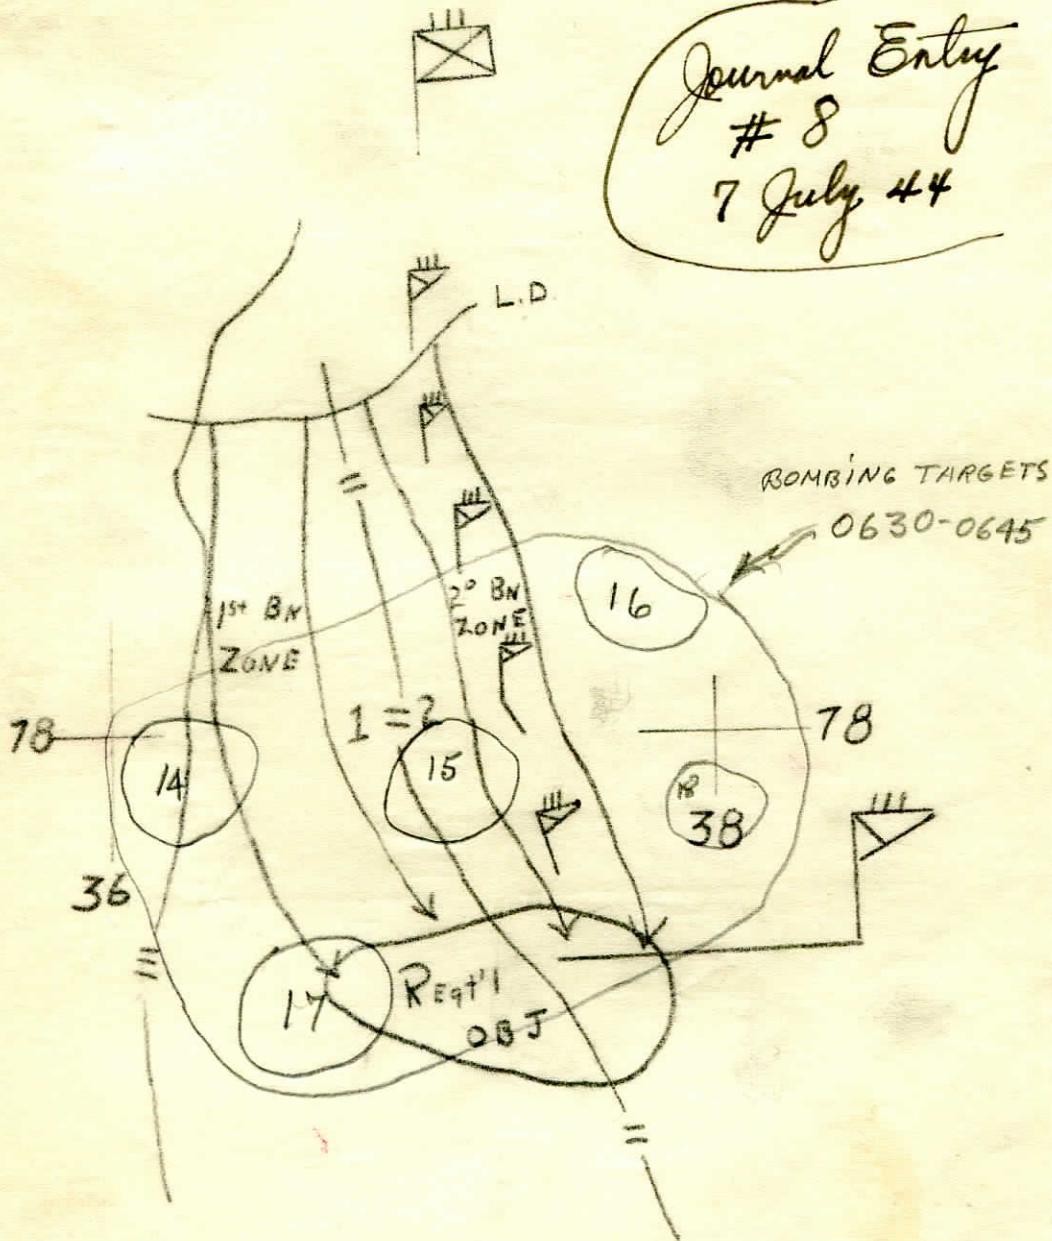 Journal Entry
# 8
7 July 44
L.D.
BOMBING TARGETS
0630-0645
16
1st BN
ZONE
2º BN
ZONE
1 = 2
78
78
14
15
18
38
36
17
REgt'l
OBJ